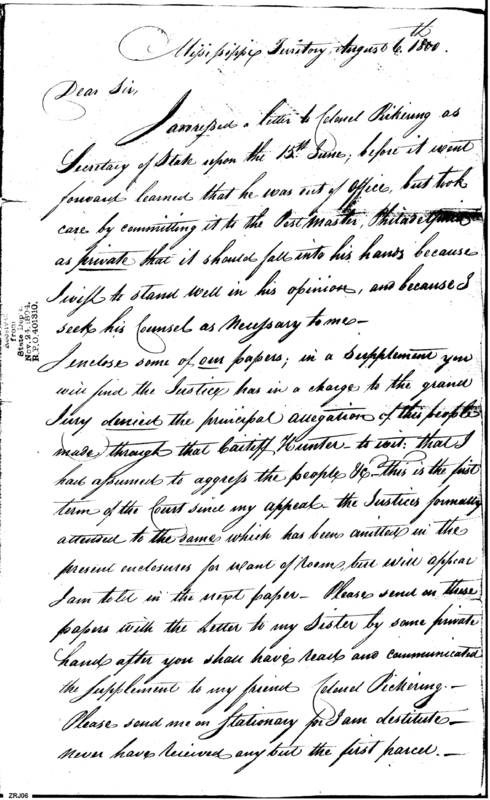 Missisippi Territory, August 6th 1800.
Dear Sir,
I addressed a letter to Colonel Pickering as
Secretary of State upon the 15th June; before it went
forward learned that he was out of Office, but took
care by committing it to the Post Master, Philadelphia
as private that it should fall into his hands because
I wish to stand well in his opinion, and because I
seek his Counsel as necessary to me—
I enclose some of our papers; in a Supplement you
will find the Justice has in a charge to the grand
Jury denied the principal allegation of this people
made through that Caitiff Hunter— to wit: that I
had assumed to aggress the people &c— this is the first
term of the Court since my appeal— the Justices formally
attended to the same which has been omitted in the
present enclosures for want of room, but will appear
I am told in the next paper— Please send on these
papers with the Letter to my Sister by some private
hand after you shall have read and communicated
the Supplement to my friend Colonel Pickering.—
Please send me on Stationary for I am destitute—
never have received any but the first parcel.—
from
State Dep't,
Nov. 24, 1894.
R.P.O. 401310.
ZRJ06